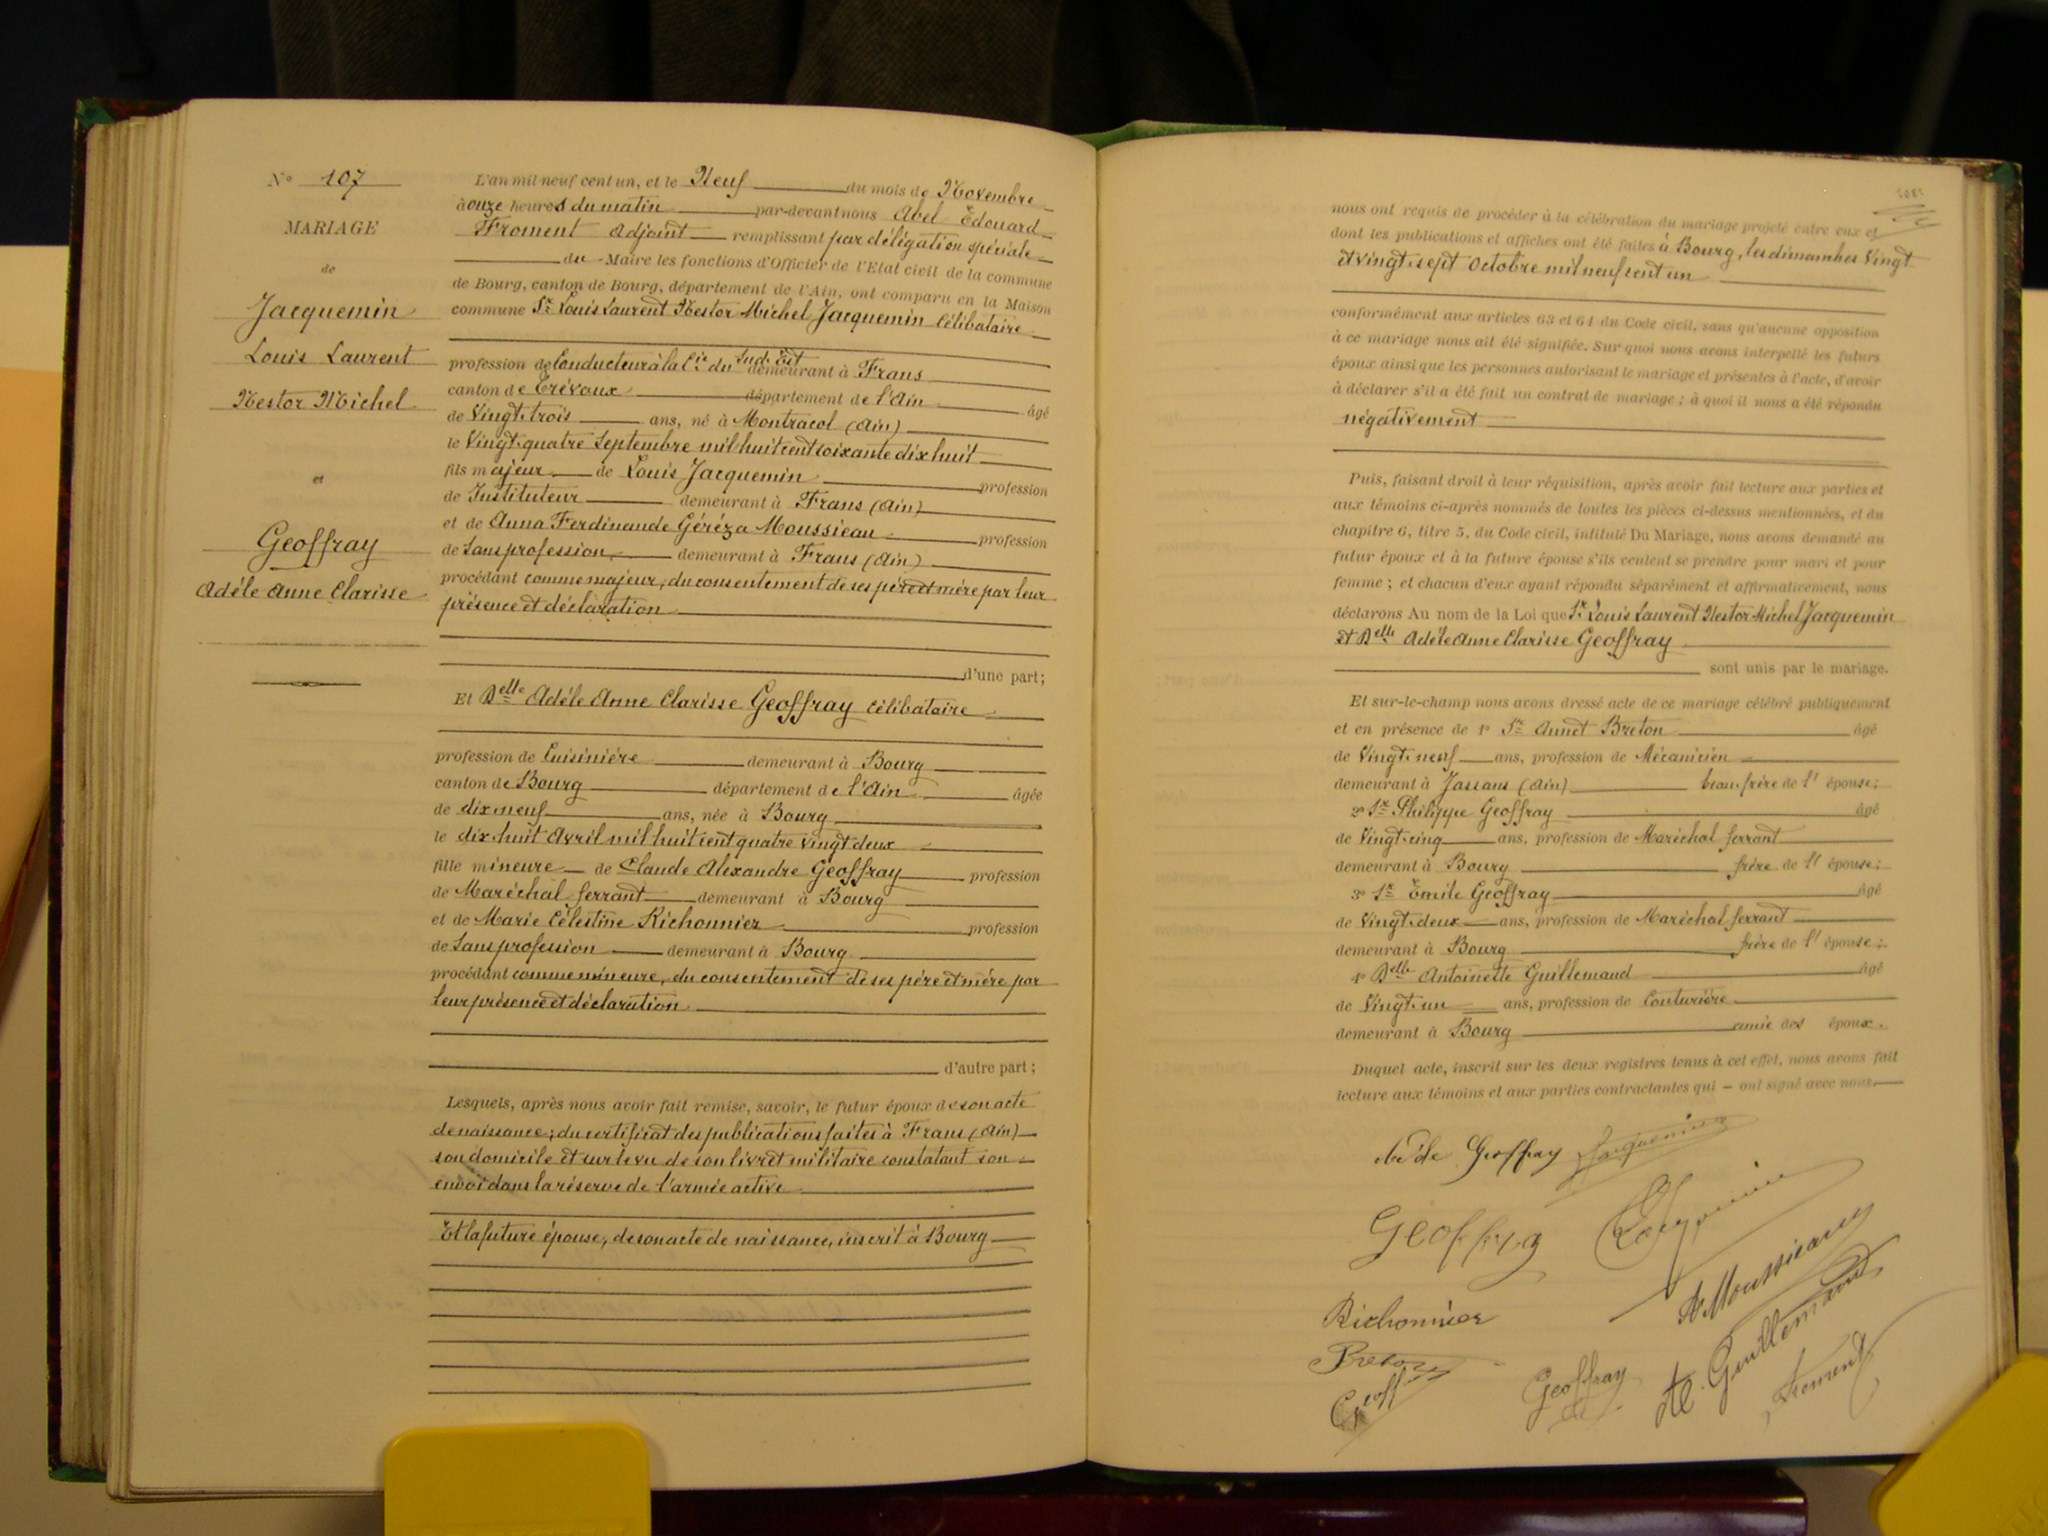 N° 107
MARIAGE
de
Jacquemin
Louis Laurent
Nestor Michel
et
Geoffray
Adèle Anne Clarisse
L'an mil neuf cent un, et le Neuf du mois de Novembre
à onze heures du matin par-devant nous Abel Edouard
Froment Adjoint remplissant par délégation spéciale
du Maire les fonctions d'Officier de l'Etat civil de la commune
de Bourg, canton de Bourg, département de l'Ain, ont comparu en la Maison
commune Sr Louis Laurent Nestor Michel Jacquemin célibataire
profession de Conducteur à la Cie du Sud Est demeurant à Frans
canton de Trévoux département de l'Ain âgé
de Vingt trois ans, né à Montracol (Ain)
le Vingt quatre Septembre mil huit cent soixante dix huit
fils majeur de Louis Jacquemin profession
de Instituteur demeurant à Frans (Ain)
et de Anna Ferdinande Géréza Moussieau profession
de Sans profession demeurant à Frans (Ain)
procédant comme majeur, du consentement de ses père et mère par leur
présence et déclaration
d'une part;
Et Delle Adèle Anne Clarisse Geoffray célibataire
profession de Cuisinière demeurant à Bourg
canton de Bourg département de l'Ain âgée
de dix neuf ans, née à Bourg
le dix huit Avril mil huit cent quatre vingt deux
fille mineure de Claude Alexandre Geoffray profession
de Maréchal ferrant demeurant à Bourg
et de Marie Célestine Richonnier profession
de Sans profession demeurant à Bourg
procédant comme mineure, du consentement de ses père et mère par
leur présence et déclaration
d'autre part;
Lesquels, après nous avoir fait remise, savoir, le futur époux de son acte
de naissance; du certificat des publications faites à Frans (Ain)
son domicile et sur le vu de son livret militaire constatant son
envoi dans la réserve de l'armée active
Et la future épouse, de son acte de naissance, inscrit à Bourg
nous ont requis de procéder à la célébration du mariage projeté entre eux et
dont les publications et affiches ont été faites à Bourg, les dimanches Vingt
et vingt sept Octobre mil neuf cent un
conformément aux articles 63 et 64 du Code civil, sans qu'aucune opposition
à ce mariage nous ait été signifiée. Sur quoi nous avons interpellé les futurs
époux ainsi que les personnes autorisant le mariage et présentes à l'acte, d'avoir
à déclarer s'il a été fait un contrat de mariage; à quoi il nous a été répondu
négativement
Puis, faisant droit à leur réquisition, après avoir fait lecture aux parties et
aux témoins ci-après nommés de toutes les pièces ci-dessus mentionnées, et du
chapitre 6, titre 5, du Code civil, intitulé Du Mariage, nous avons demandé au
futur époux et à la future épouse s'ils veulent se prendre pour mari et pour
femme; et chacun d'eux ayant répondu séparément et affirmativement, nous
déclarons Au nom de la Loi que Sr Louis Laurent Nestor Michel Jacquemin
et Delle Adèle Anne Clarisse Geoffray
sont unis par le mariage.
Et sur-le-champ nous avons dressé acte de ce mariage célébré publiquement
et en présence de 1° Sr Annet Breton âgé
de Vingt neuf ans, profession de Mécanicien
demeurant à Jassans (Ain) beau frère de l'épouse;
2° Sr Philippe Geoffray âgé
de Vingt cinq ans, profession de Maréchal ferrant
demeurant à Bourg frère de l'épouse;
3° Sr Emile Geoffray âgé
de Vingt deux ans, profession de Maréchal ferrant
demeurant à Bourg frère de l'épouse;
4° Delle Antoinette Guillemaud âgé
de Vingt un ans, profession de Couturière
demeurant à Bourg amie des époux.
Duquel acte, inscrit sur les deux registres tenus à cet effet, nous avons fait
lecture aux témoins et aux parties contractantes qui ont signé avec nous
Geoffray Jacquemin
Geoffray Jacquemin
A Moussieau
Richonnier
Breton
A. Guillemaud
Geoffray
Froment